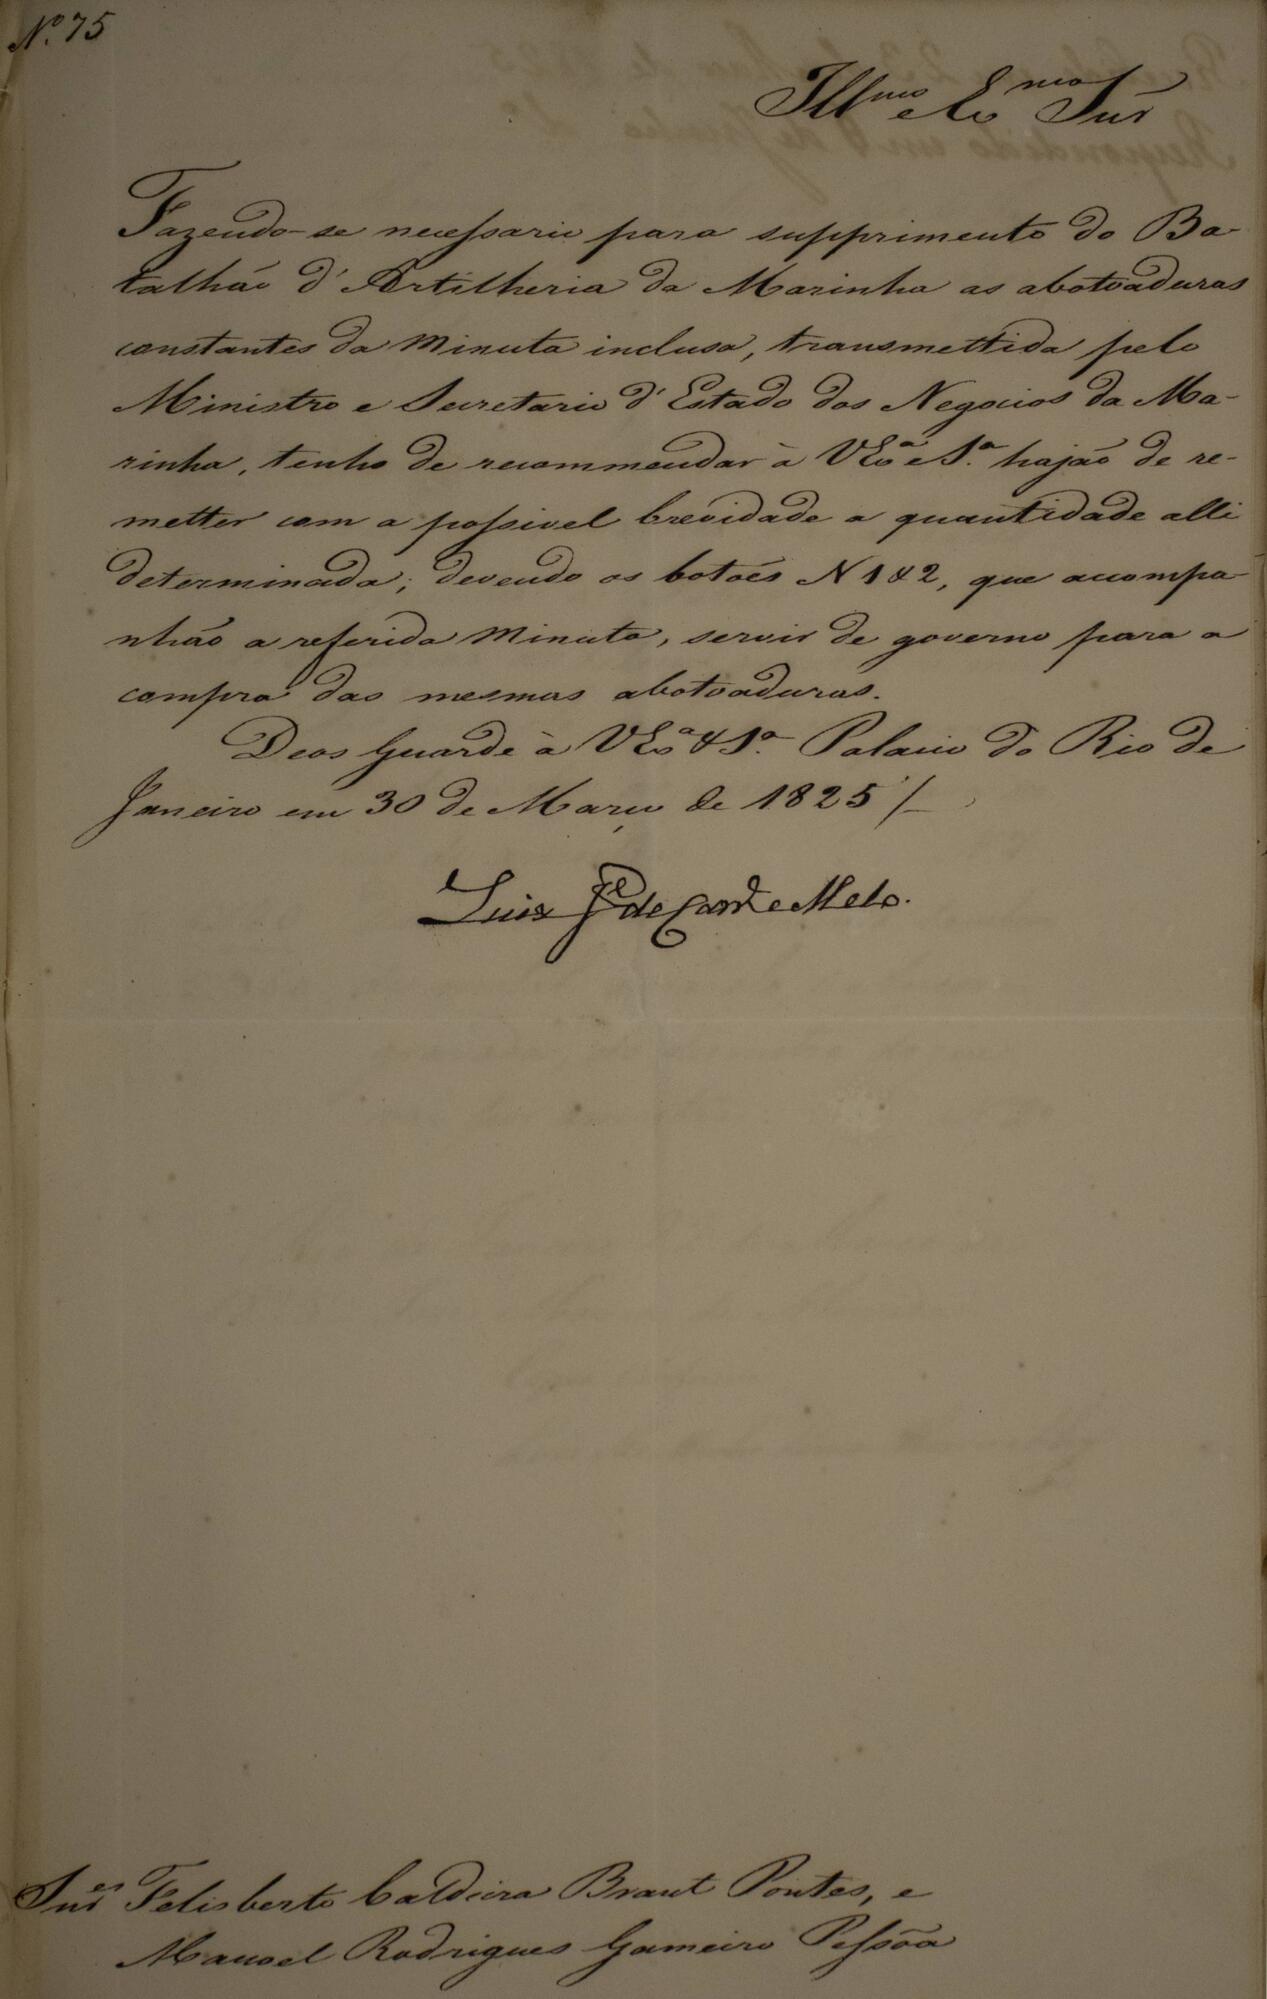 Nº 75
Illmo e Exmo Snr
Fazendo-se necessario para supprimento do Ba-
talhão d'Artilheria da Marinha as abotoaduras
constantes da Minuta inclusa, transmettida pelo
Ministro e Secretario d'Estado dos Negocios da Ma-
rinha, tenho de recommendar à VExª e Sª. hajão de re-
metter com a possivel brevidade a quantidade alli
determinada; devendo os botoẽs N 1 & 2, que accompa-
nhão a referida Minuta, servir de governo para a
compra das mesmas abotoaduras.
Deos Guarde à VExª & Sª. Palacio do Rio de
Janeiro em 30 de Março de 1825 /
Luis Je de Carvo e Mello.
Snres Felisberto Caldeira Brant Pontes, e
Manoel Rodrigues Gameiro Pessôa